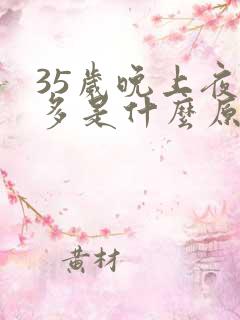 35歲晚上夜
多是什麼原
黄材